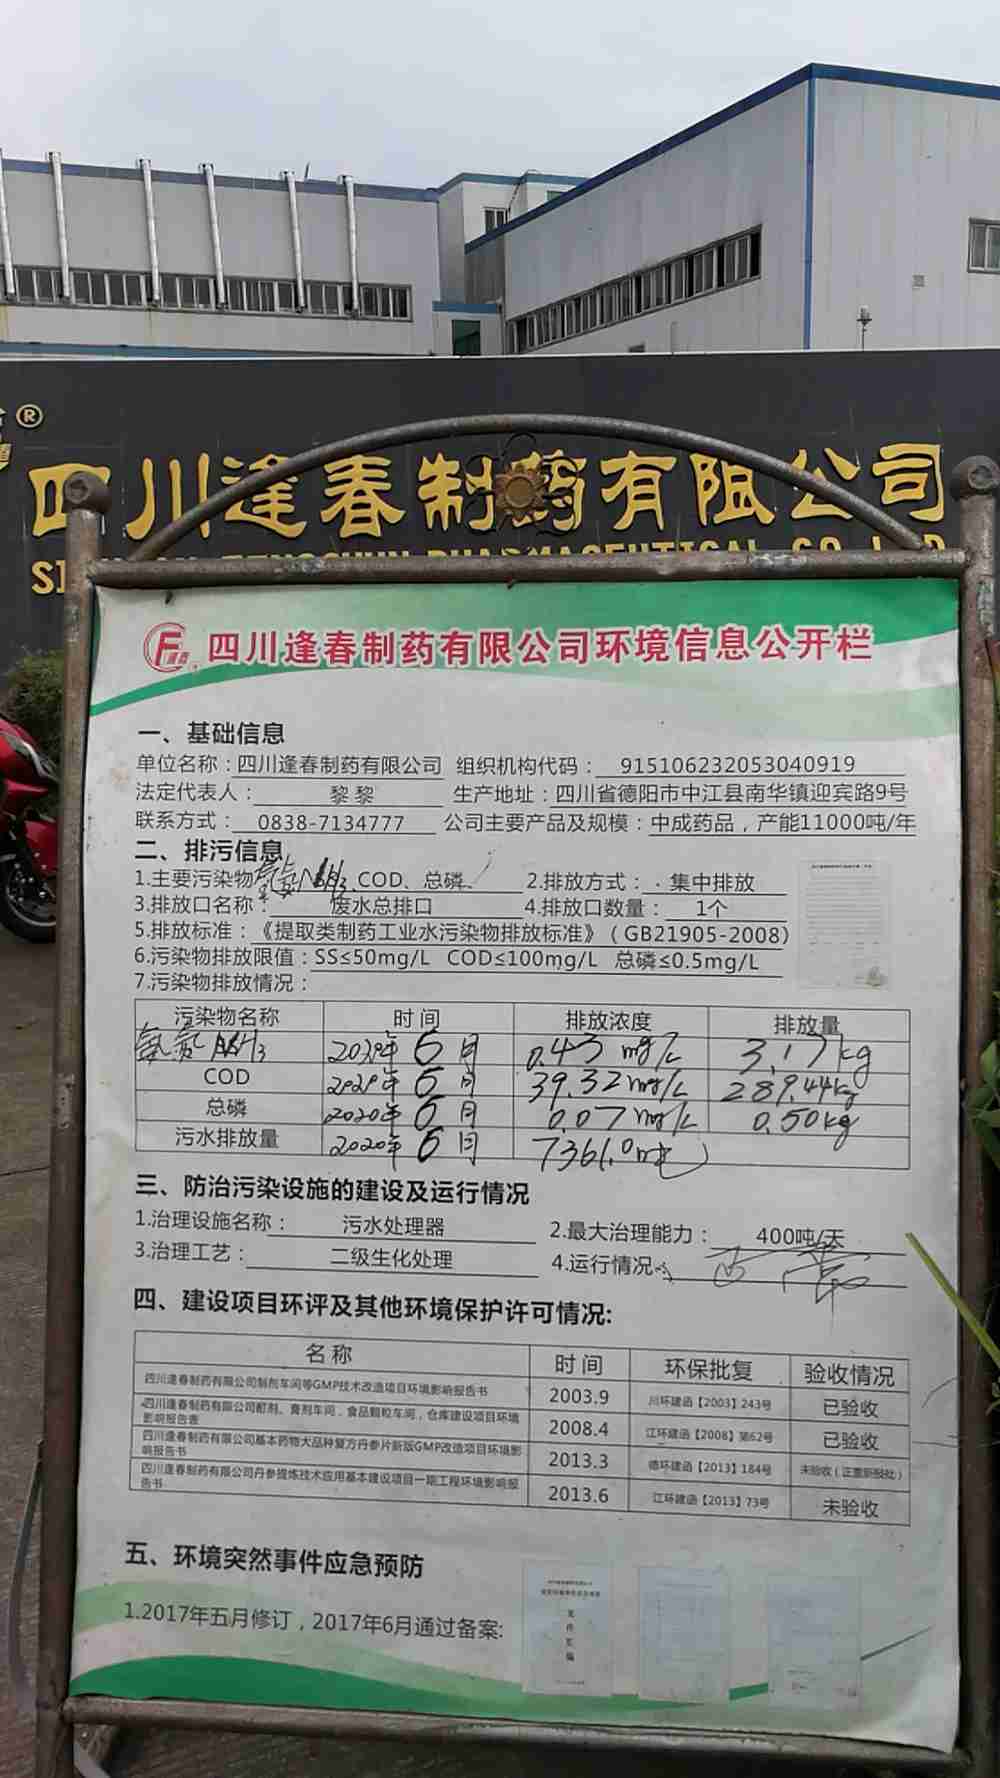 ®
四川逢春制药有限公司
四川逢春制药有限公司环境信息公开栏
一、基础信息
单位名称：四川逢春制药有限公司 组织机构代码： 915106232053040919
法定代表人： 黎黎 生产地址：四川省德阳市中江县南华镇迎宾路9号
联系方式： 0838-7134777 公司主要产品及规模：中成药品，产能11000吨/年
二、排污信息
1.主要污染物 氨氮NH3、COD、总磷、 2.排放方式： 集中排放
3.排放口名称： 废水总排口 4.排放口数量： 1个
5.排放标准：《提取类制药工业水污染物排放标准》（GB21905-2008）
6.污染物排放限值：SS≤50mg/L COD≤100mg/L 总磷≤0.5mg/L
7.污染物排放情况：
污染物名称 时间 排放浓度 排放量
氨氮 NH3 2020年6月 0.43 mg/L 3.17kg
COD 2020年6月 39.32mg/L 289.44kg
总磷 2020年6月 0.07mg/L 0.50kg
污水排放量 2020年6月 7361.0吨
三、防治污染设施的建设及运行情况
1.治理设施名称： 污水处理器 2.最大治理能力： 400吨/天
3.治理工艺： 二级生化处理 4.运行情况：
四、建设项目环评及其他环境保护许可情况:
名称 时间 环保批复 验收情况
四川逢春制药有限公司制剂车间等GMP技术改造项目环境影响报告书 2003.9 川环建函【2003】243号 已验收
四川逢春制药有限公司酊剂、膏剂车间，食品颗粒车间，仓库建设项目环境
影响报告表 2008.4 江环建函【2008】第62号 已验收
四川逢春制药有限公司基本药物大品种复方丹参片新版GMP改造项目环境影
响报告书 2013.3 德环建函【2013】184号 未验收（正重新报批）
四川逢春制药有限公司丹参提炼技术应用基本建设项目一期工程环境影响报
告书 2013.6 江环建函【2013】73号 未验收
五、环境突然事件应急预防
1.2017年五月修订，2017年6月通过备案: